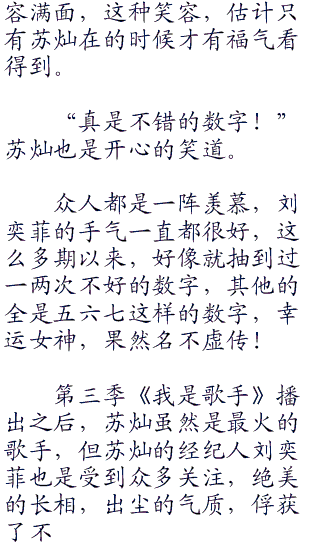 容满面，这种笑容，估计只
有苏灿在的时候才有福气看
得到。
“真是不错的数字！”
苏灿也是开心的笑道。
众人都是一阵羡慕，刘
奕菲的手气一直都很好，这
么多期以来，好像就抽到过
一两次不好的数字，其他的
全是五六七这样的数字，幸
运女神，果然名不虚传！
第三季《我是歌手》播
出之后，苏灿虽然是最火的
歌手，但苏灿的经纪人刘奕
菲也是受到众多关注，绝美
的长相，出尘的气质，俘获
了不